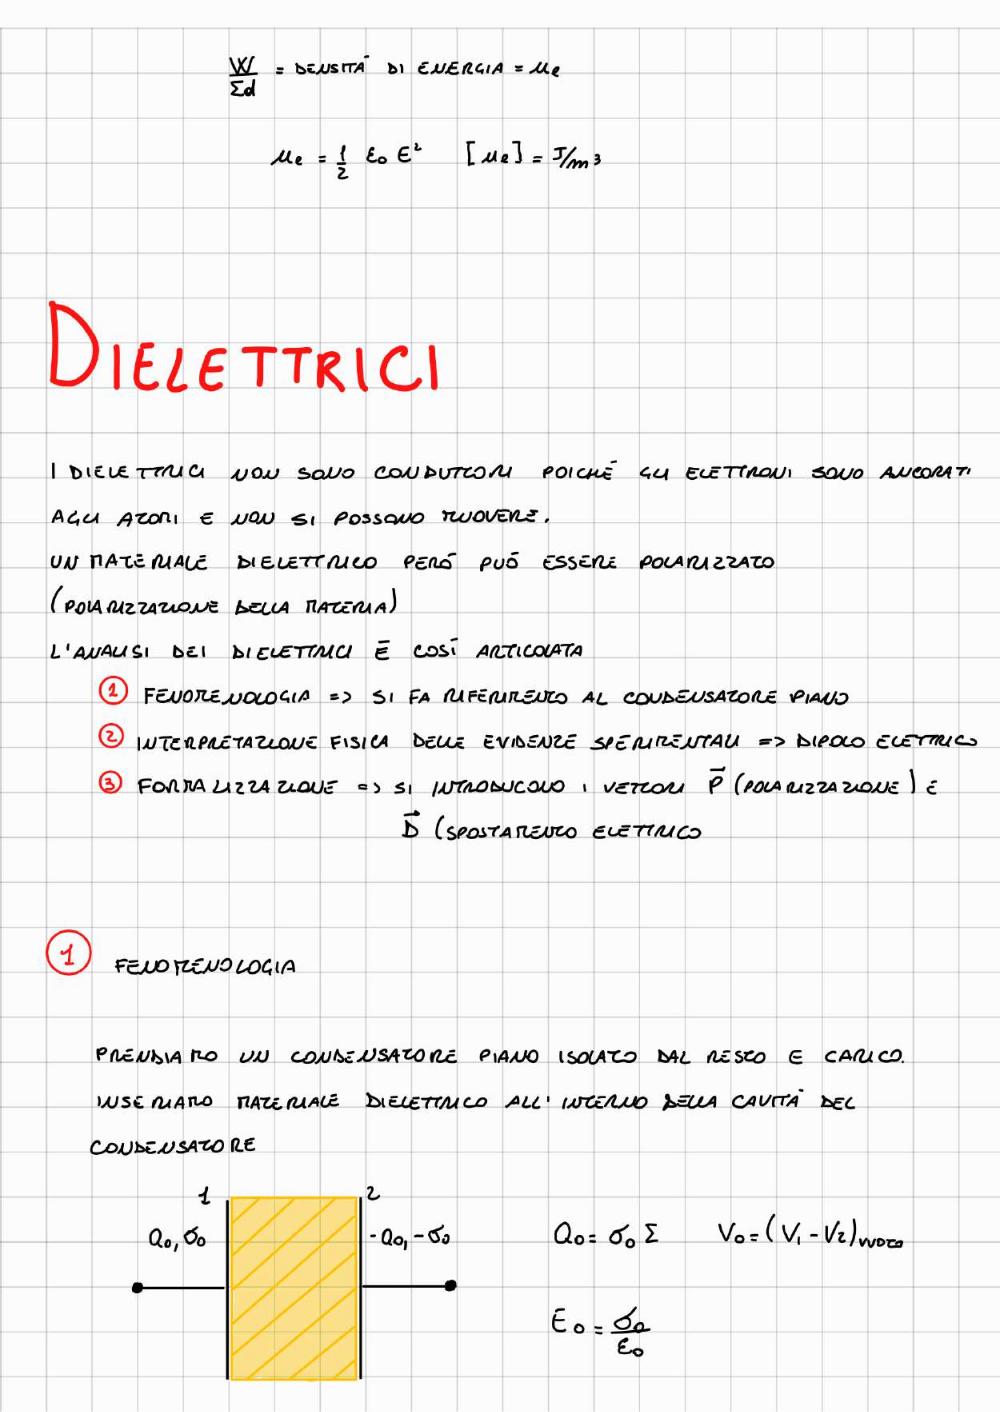 W/Σd = DENSITÀ DI ENERGIA = ue
ue = 1/2 ε0 E² [ue] = J/m³
DIELETTRICI
I DIELETTRICI NON SONO CONDUTTORI POICHÉ GLI ELETTRONI SONO ANCORATI
AGLI ATOMI E NON SI POSSONO MUOVERE.
UN MATERIALE DIELETTRICO PERÓ PUÓ ESSERE POLARIZZATO
(POLARIZZAZIONE DELLA MATERIA)
L'ANALISI DEI DIELETTRICI È COSÌ ARTICOLATA
1 FENOMENOLOGIA => SI FA RIFERIMENTO AL CONDENSATORE PIANO
2 INTERPRETAZIONE FISICA DELLE EVIDENZE SPERIMENTALI => DIPOLO ELETTRICO
3 FORMALIZZAZIONE => SI INTRODUCONO I VETTORI P⃗ (POLARIZZAZIONE) E
D⃗ (SPOSTAMENTO ELETTRICO
1 FENOMENOLOGIA
PRENDIAMO UN CONDENSATORE PIANO ISOLATO DAL RESTO E CARICO.
INSERIAMO MATERIALE DIELETTRICO ALL'INTERNO DELLA CAVITÀ DEL
CONDENSATORE
1 2
Q0, σ0 -Q0, -σ0 Q0 = σ0 Σ V0 = (V1 - V2)VUOTO
E0 = σ0/ε0